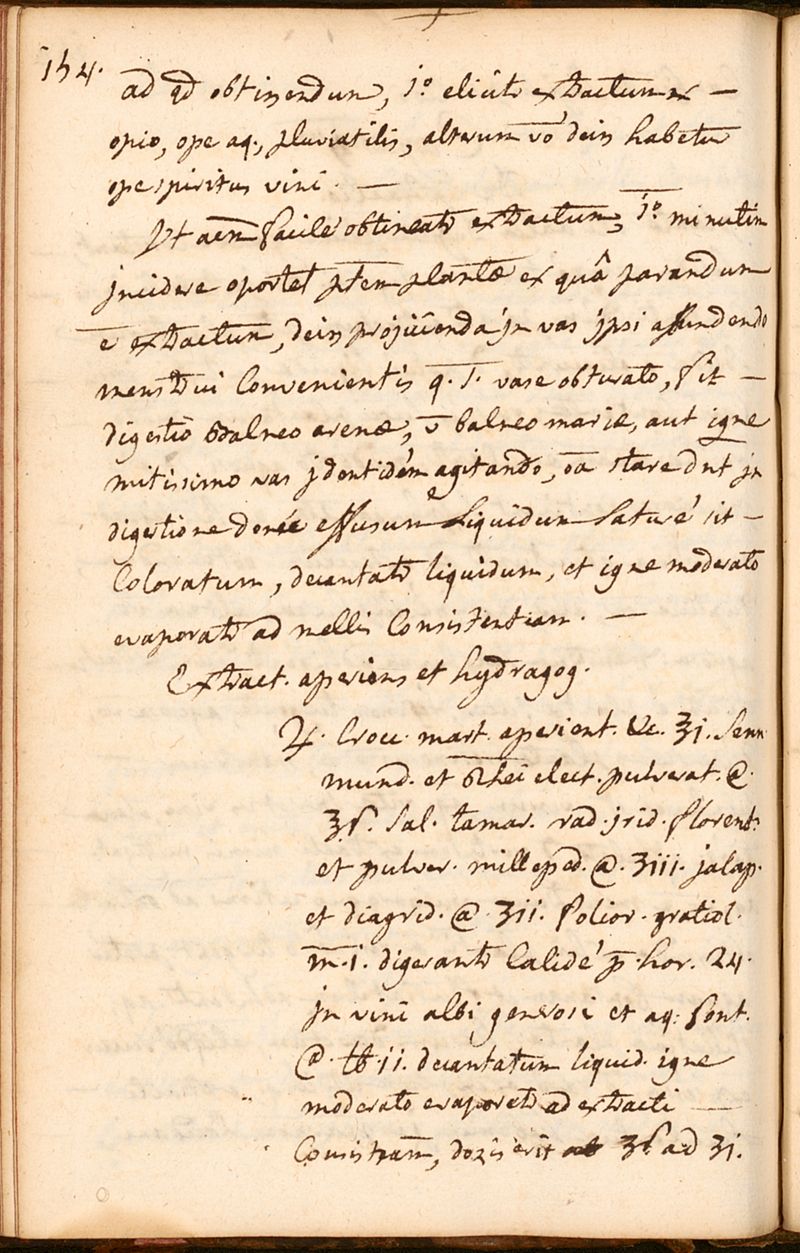 154.
ad qd obtinendum, 1º elicitr extractum ex —
opio, ope aq. pluviatilis, alterum vō dein habetur
ope spiritus vini. —
Ut aūm facile obtineatr extractum, 1º minutim
jncidere oportet ptem plantæ ex quâ parandum
ē extractum, dein projiicienda jn vas jpsi affundendo
menstrui Convenientis q. s. vase obturato, fit —
digestio balneo arenæ, v̄ balneo mariæ, aut igne
mitissimo vas jdentidém agitando, oā stare dnt jn
digestione donec effusum liquidum saturé sit —
Coloratum, decantatr liquidum, et igne moderato
evaporatr ad mellis Consistentiam. —
Extract. aperiens et hydragog.
♃. Croci mart. aperient. &c. ʒj. senn
mund. et Rhei elect. pulverat. @.
ʒſ. Sal. tamar. rad. jrid. florent.
et pulver. milleped. @. ʒiii. jalap.
et diagrid. @ ʒii. folior. gratiol.
m̄. i. digerantr Calidé p̄. hor. 24.
jn vini albi generosi et aq. font.
@. ℔. ii. decantatum liquid. igne
moderato evaporetr ad extracti —
Consistāam, dozis erit ʒſ ad ʒj.